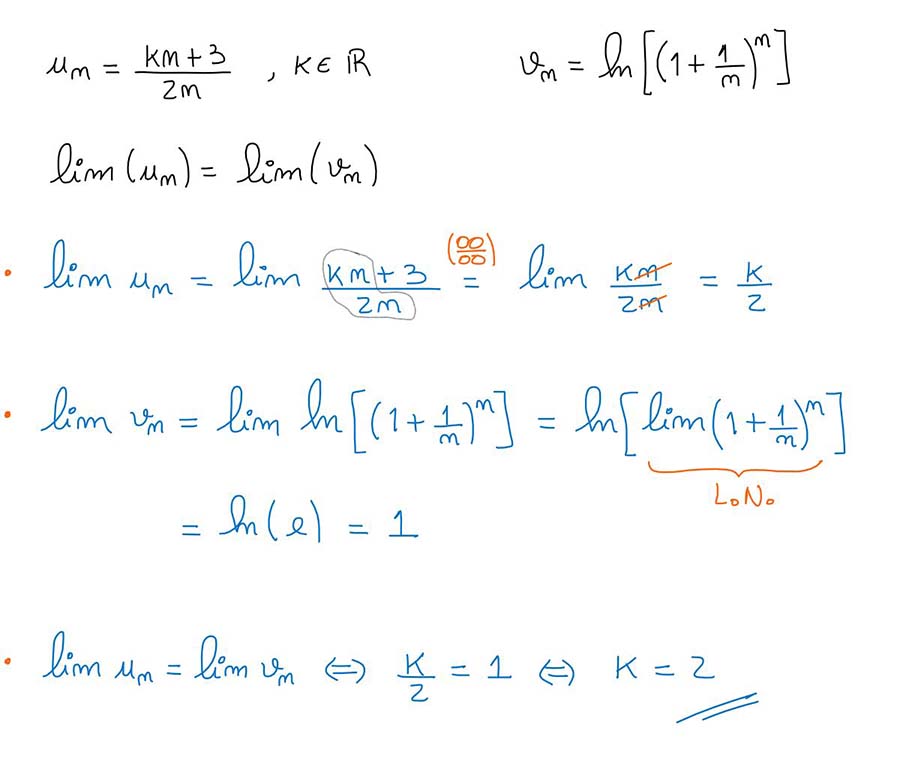 uₙ = (kn + 3)/(2n) , k ∈ ℝ vₙ = ln[(1 + 1/n)ⁿ]
lim(uₙ) = lim(vₙ)
• lim uₙ = lim (kn + 3)/(2n) =(∞/∞) lim kn/2n = k/2
• lim vₙ = lim ln[(1 + 1/n)ⁿ] = ln[lim(1 + 1/n)ⁿ]
L.N.
= ln(e) = 1
• lim uₙ = lim vₙ ⇔ k/2 = 1 ⇔ k = 2